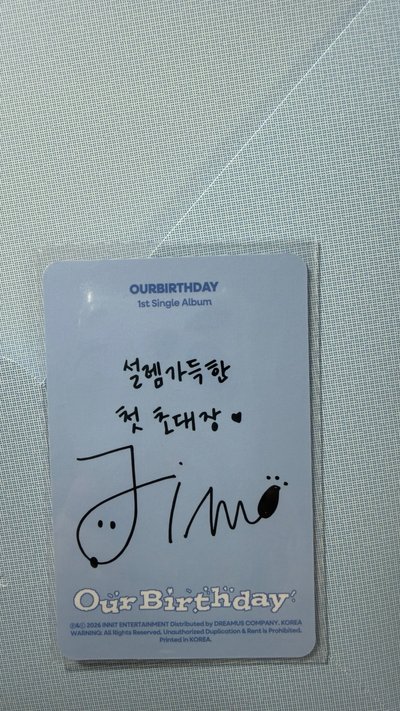 OURBIRTHDAY
1st Single Album
설렘가득한
첫 초대장 ♥
Jimo
Our Birthday
℗&© 2026 INNIT ENTERTAINMENT Distributed by DREAMUS COMPANY. KOREA
WARNING: All Rights Reserved. Unauthorized Duplication & Rent is Prohibited.
Printed in KOREA.